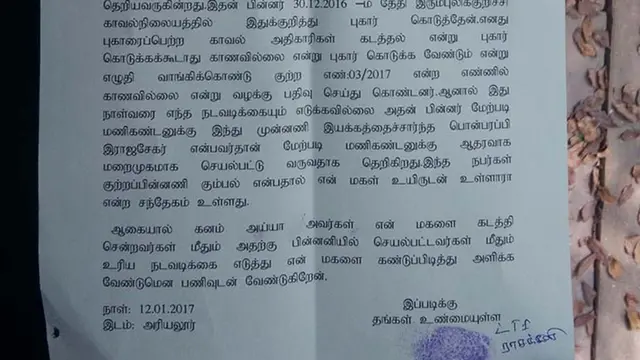 தெரியவருகின்றது.இதன் பின்னர் 30.12.2016 –ம் தேதி இரும்புலிக்குறிச்சி
காவல்நிலையத்தில் இதுக்குறித்து புகார் கொடுத்தேன்.எனது
புகாரைப்பெற்ற காவல் அதிகாரிகள் கடத்தல் என்று புகார்
கொடுக்கக்கூடாது காணவில்லை என்று புகார் கொடுக்க வேண்டும் என்று
எழுதி வாங்கிக்கொண்டு குற்ற எண்:03/2017 என்ற எண்ணில்
காணவில்லை என்று வழக்கு பதிவு செய்து கொண்டனர்.ஆனால் இது
நாள்வரை எந்த நடவடிக்கையும் எடுக்கவில்லை அதன் பின்னர் மேற்படி
மணிகண்டனுக்கு இந்து முன்னணி இயக்கத்தைச்சார்ந்த பொன்பரப்பி
இராஜசேகர் என்பவர்தான் மேற்படி மணிகண்டனுக்கு ஆதரவாக
மறைமுகமாக செயல்பட்டு வருவதாக தெறிகிறது.இந்த நபர்கள்
குற்றப்பின்னணி கும்பல் என்பதால் என் மகள் உயிருடன் உள்ளாரா
என்ற சந்தேகம் உள்ளது.
ஆகையால் கனம் அய்யா அவர்கள் என் மகளை கடத்தி
சென்றவர்கள் மீதும் அதற்கு பின்னனியில் செயல்பட்டவர்கள் மீதும்
உரிய நடவடிக்கை எடுத்து என் மகளை கண்டுப்பிடித்து அளிக்க
வேண்டுமென பணிவுடன் வேண்டுகிறேன்.
நாள்: 12.01.2017 இப்படிக்கு
இடம்: அரியலூர் தங்கள் உண்மையுள்ள
LTI